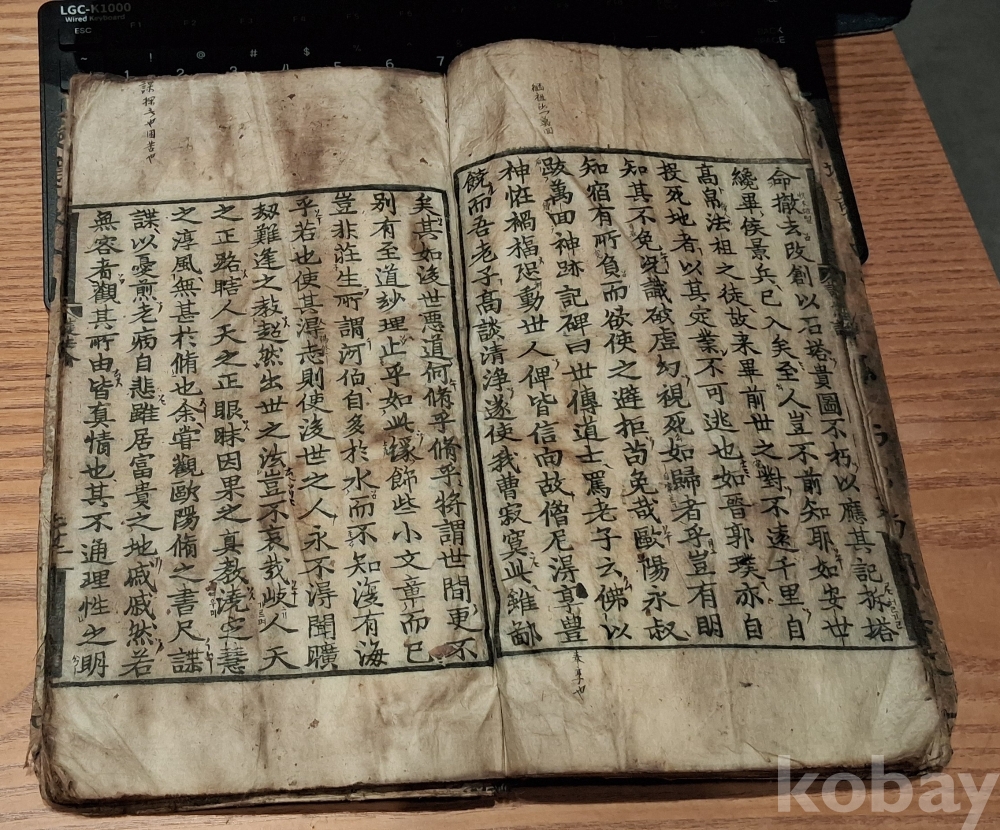 LGC-K1000
Wired Keyboard
ESC
命撤去改創以石塔貴圖不朽以應其記拆塔
纔畢侯景兵已入矣至人豈不前知耶如安世
高帛法祖之徒故来畢前世之對不遠千里自
投死地者以其定業不可逃也如晉郭璞亦自
知其不免况識破虛幻視死如歸者乎豈有明
知宿有所負而欲使之避拒苟免哉歐陽永叔
跋萬回神跡記碑曰世傳道士罵老子云佛以
神恠禍福恐動世人俾皆信向故僧尼得享豊
饒而吾老子高談清浄遂使我曹寂寞此雖鄙
矣其如後世惡道何脩乎脩乎將謂世間更不
别有至道妙理止乎如此緣飾些小文章而已
豈非莊生所謂河伯自多於水而不知復有海
乎若也使其得志則使後世之人永不得聞曠
劫難逢之教超然出世之法豈不哀哉岐人天
之正路瞎人天之正眼昧因果之真教澆定慧
之淳風無甚於脩也余嘗觀歐陽脩之書尺諜
諜以憂煎老病自悲雖居富貴之地戚戚然若
無容者觀其所由皆真情也其不通理性之明
kobay